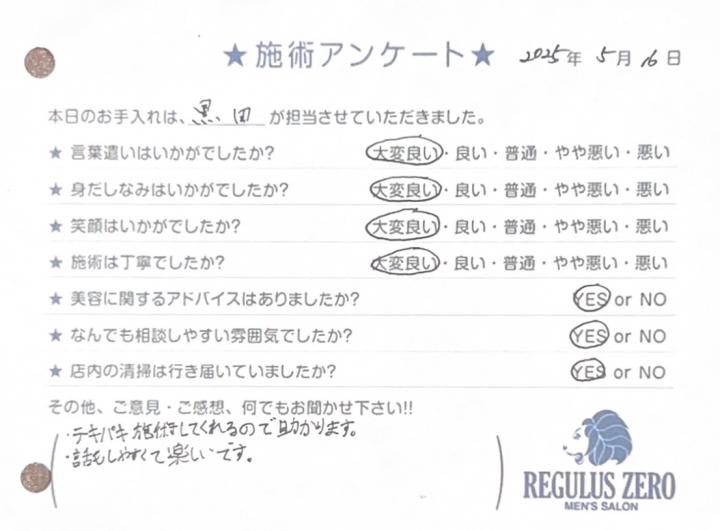 ★施術アンケート★ 2025年 5月 16日
本日のお手入れは、黒田が担当させていただきました。
★ 言葉遣いはいかがでしたか? 大変良い・良い・普通・やや悪い・悪い
★ 身だしなみはいかがでしたか? 大変良い・良い・普通・やや悪い・悪い
★ 笑顔はいかがでしたか? 大変良い・良い・普通・やや悪い・悪い
★ 施術は丁寧でしたか? 大変良い・良い・普通・やや悪い・悪い
★ 美容に関するアドバイスはありましたか? YES or NO
★ なんでも相談しやすい雰囲気でしたか? YES or NO
★ 店内の清掃は行き届いていましたか? YES or NO
その他、ご意見・ご感想、何でもお聞かせ下さい!!
・テキパキ施術をしてくれるので助かります。
・話もしやすくて楽しいです。
REGULUS ZERO
MEN'S SALON